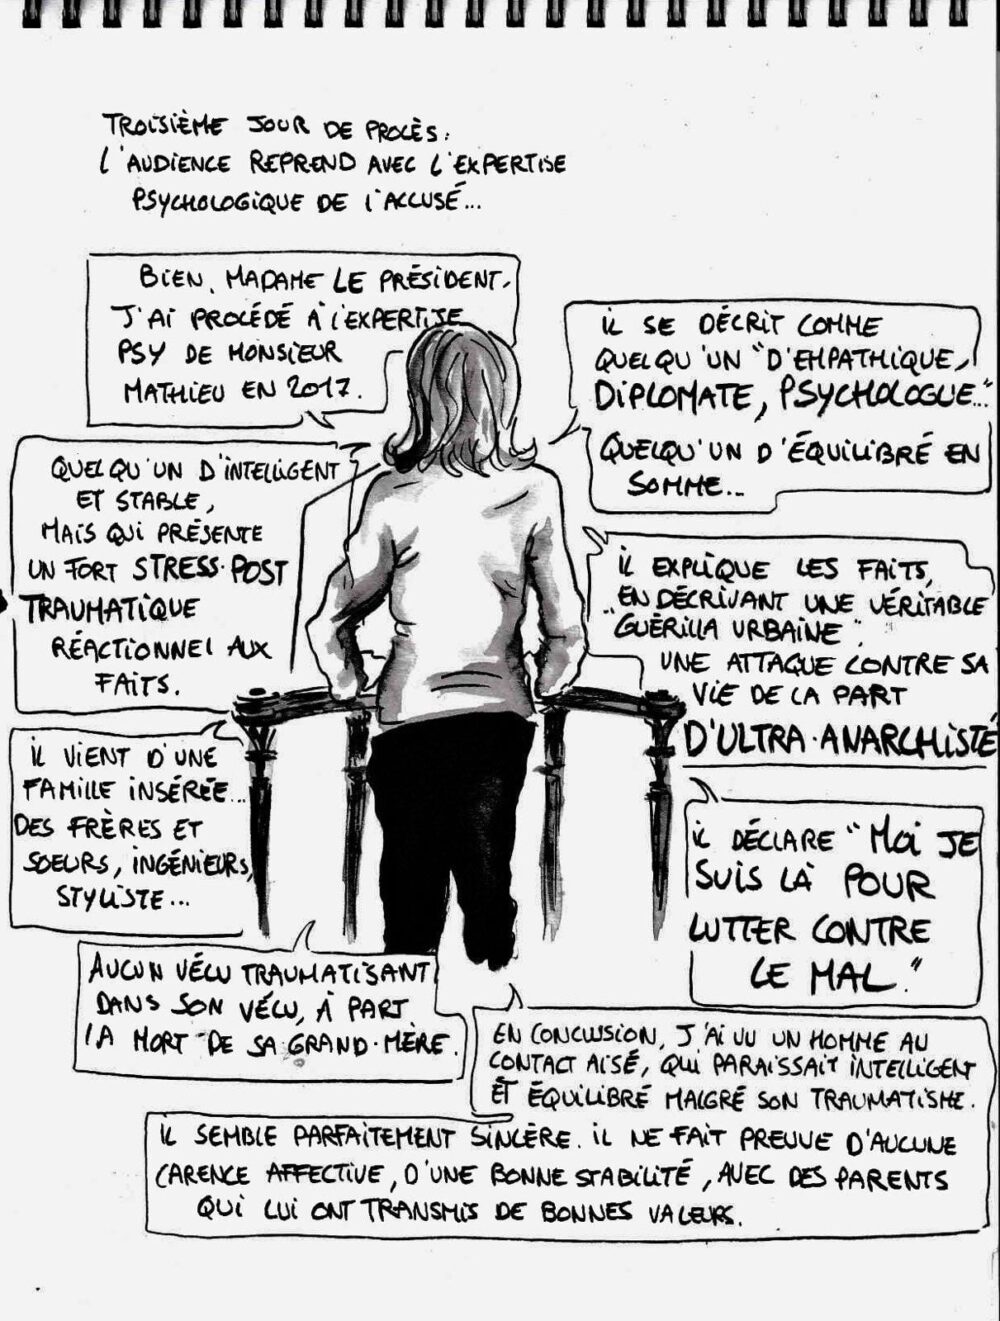 TROISIÈME JOUR DE PROCÈS:
L'AUDIENCE REPREND AVEC L'EXPERTISE
PSYCHOLOGIQUE DE L'ACCUSÉ...
BIEN, MADAME LE PRÉSIDENT,
J'AI PROCÉDÉ À L'EXPERTISE
PSY DE MONSIEUR
MATHIEU EN 2017.
IL SE DÉCRIT COMME
QUELQU'UN "D'EMPATHIQUE,
DIPLOMATE, PSYCHOLOGUE..."
QUELQU'UN D'ÉQUILIBRÉ EN
SOMME...
QUELQU'UN D'INTELLIGENT
ET STABLE,
MAIS QUI PRÉSENTE
UN FORT STRESS-POST
TRAUMATIQUE
RÉACTIONNEL AUX
FAITS.
IL EXPLIQUE LES FAITS,
EN DÉCRIVANT UNE VÉRITABLE
"GUÉRILLA URBAINE".
UNE ATTAQUE CONTRE SA
VIE DE LA PART
D'ULTRA-ANARCHISTE
IL VIENT D'UNE
FAMILLE INSÉRÉE...
DES FRÈRES ET
SOEURS, INGÉNIEURS,
STYLISTE...
IL DÉCLARE "MOI JE
SUIS LÀ POUR
LUTTER CONTRE
LE MAL."
AUCUN VÉCU TRAUMATISANT
DANS SON VÉCU, À PART
LA MORT DE SA GRAND-MÈRE.
EN CONCLUSION, J'AI VU UN HOMME AU
CONTACT AISÉ, QUI PARAISSAIT INTELLIGENT
ET ÉQUILIBRÉ MALGRÉ SON TRAUMATISME.
IL SEMBLE PARFAITEMENT SINCÈRE. IL NE FAIT PREUVE D'AUCUNE
CARENCE AFFECTIVE, D'UNE BONNE STABILITÉ, AVEC DES PARENTS
QUI LUI ONT TRANSMIS DE BONNES VALEURS.